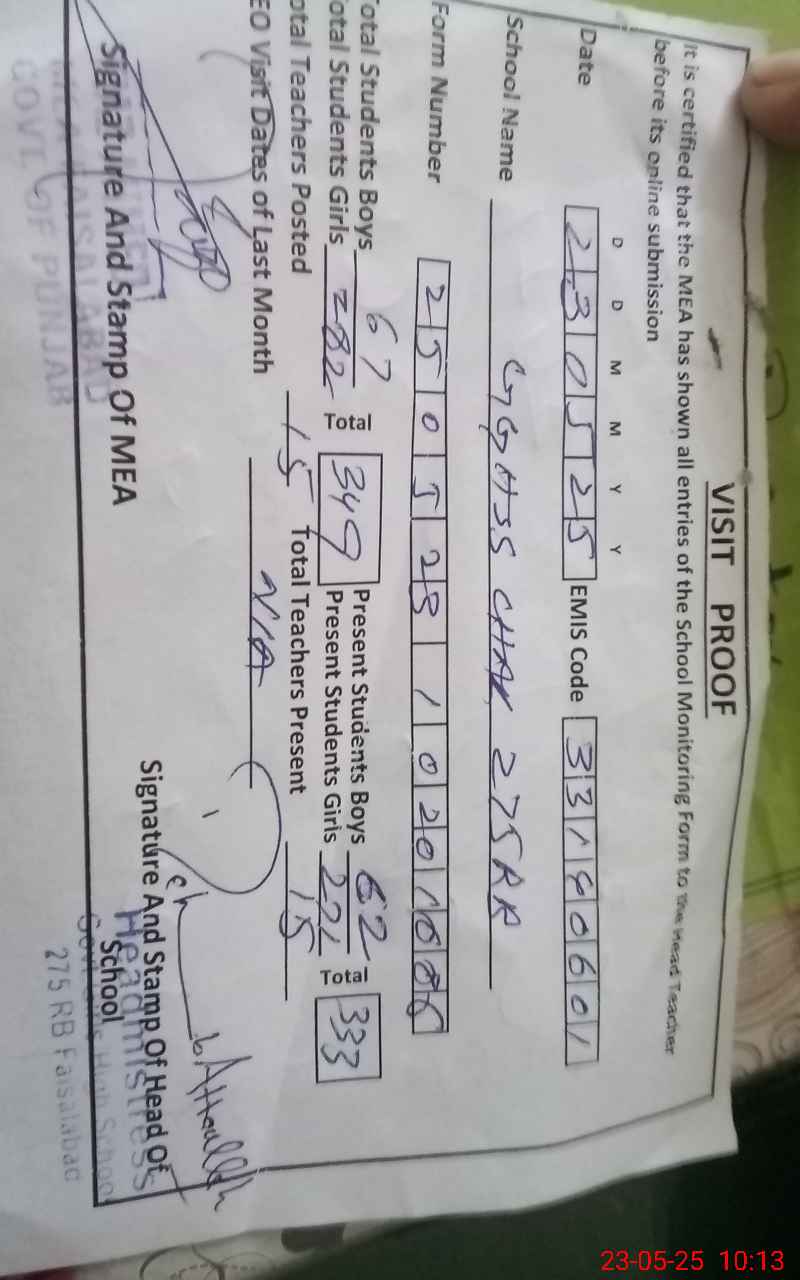 VISIT PROOF
It is certified that the MEA has shown all entries of the School Monitoring Form to the Head Teacher
before its online submission
D D M M Y Y
Date 230525 EMIS Code 33180601
School Name GGHSS CHAK 275RB
Form Number 25052310201006
Total Students Boys 67 Present Students Boys 62
Total Students Girls 282 Total 349 Present Students Girls 271 Total 333
Total Teachers Posted 15 Total Teachers Present 15
EO Visit Dates of Last Month N/A
Signature And Stamp Of MEA
Signature And Stamp Of Head Of
School
MEA FAISALABAD
GOVT. OF PUNJAB
Headmistress
Govt. Girls High School
275 RB Faisalabad
23-05-25 10:13